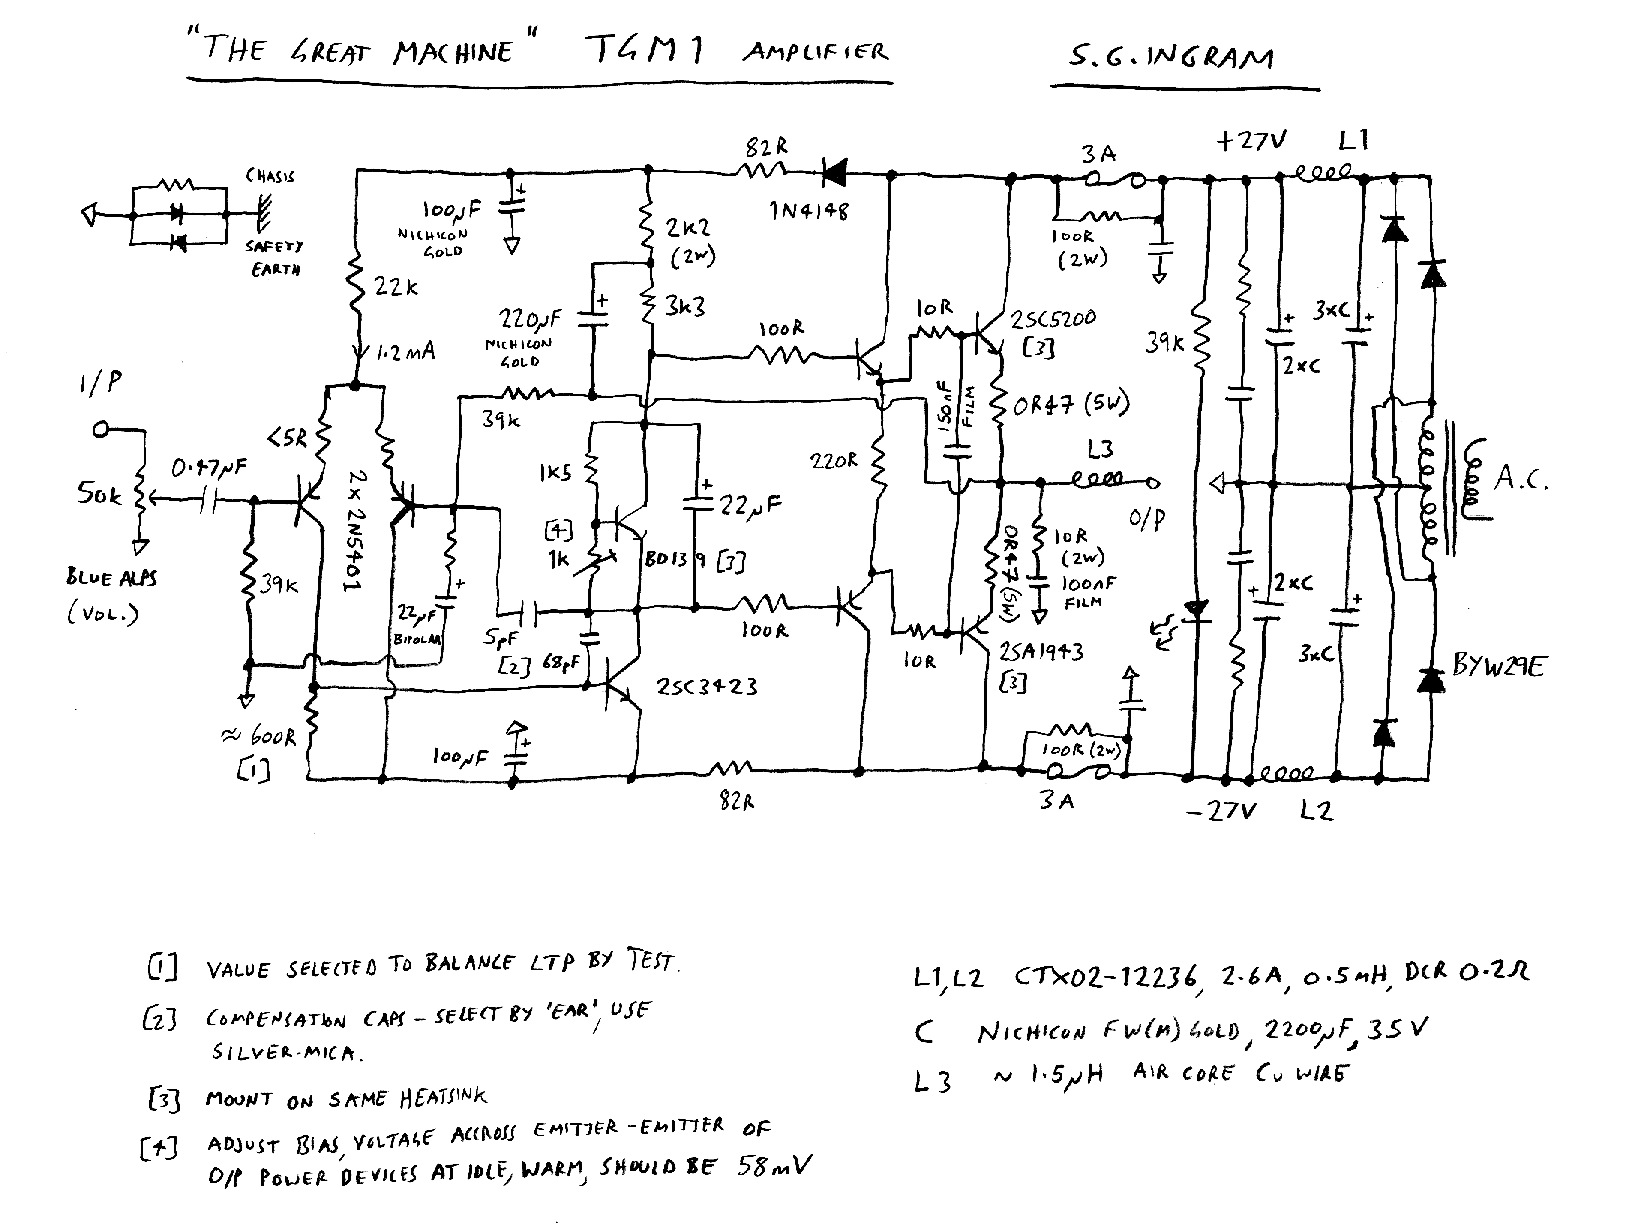 "THE GREAT MACHINE" TGM1 AMPLIFIER
S.G. INGRAM
CHASIS
SAFETY
EARTH
82R
1N4148
3A
+27V
L1
100µF
NICHICON
GOLD
2K2
(2W)
100R
(2W)
22K
3K3
1.2mA
220µF
NICHICON
GOLD
100R
10R
2SC5200
[3]
39K
3xC
2xC
I/P
39K
150nF
FILM
0R47 (5W)
<5R
0.47µF
1K5
220R
L3
50K
2x2N5401
22µF
O/P
A.C.
[4]
1K
BD139 [3]
0R47(5W)
10R
(2W)
100nF
FILM
BLUE ALPS
(VOL.)
39K
22µF
BIPOLAR
5pF
[2]
68pF
100R
10R
2SA1943
[3]
2xC
3xC
BYW29E
2SC3423
≈600R
[1]
100µF
82R
100R(2W)
3A
-27V
L2
[1] VALUE SELECTED TO BALANCE LTP BY TEST.
[2] COMPENSATION CAPS - SELECT BY 'EAR', USE
SILVER-MICA.
[3] MOUNT ON SAME HEATSINK
[4] ADJUST BIAS, VOLTAGE ACCROSS EMITTER-EMITTER OF
O/P POWER DEVICES AT IDLE, WARM, SHOULD BE 58mV
L1, L2 CTX02-12236, 2.6A, 0.5mH, DCR 0.2Ω
C NICHICON FW(M) GOLD, 2200µF, 35V
L3 ~ 1.5µH AIR CORE Cu WIRE